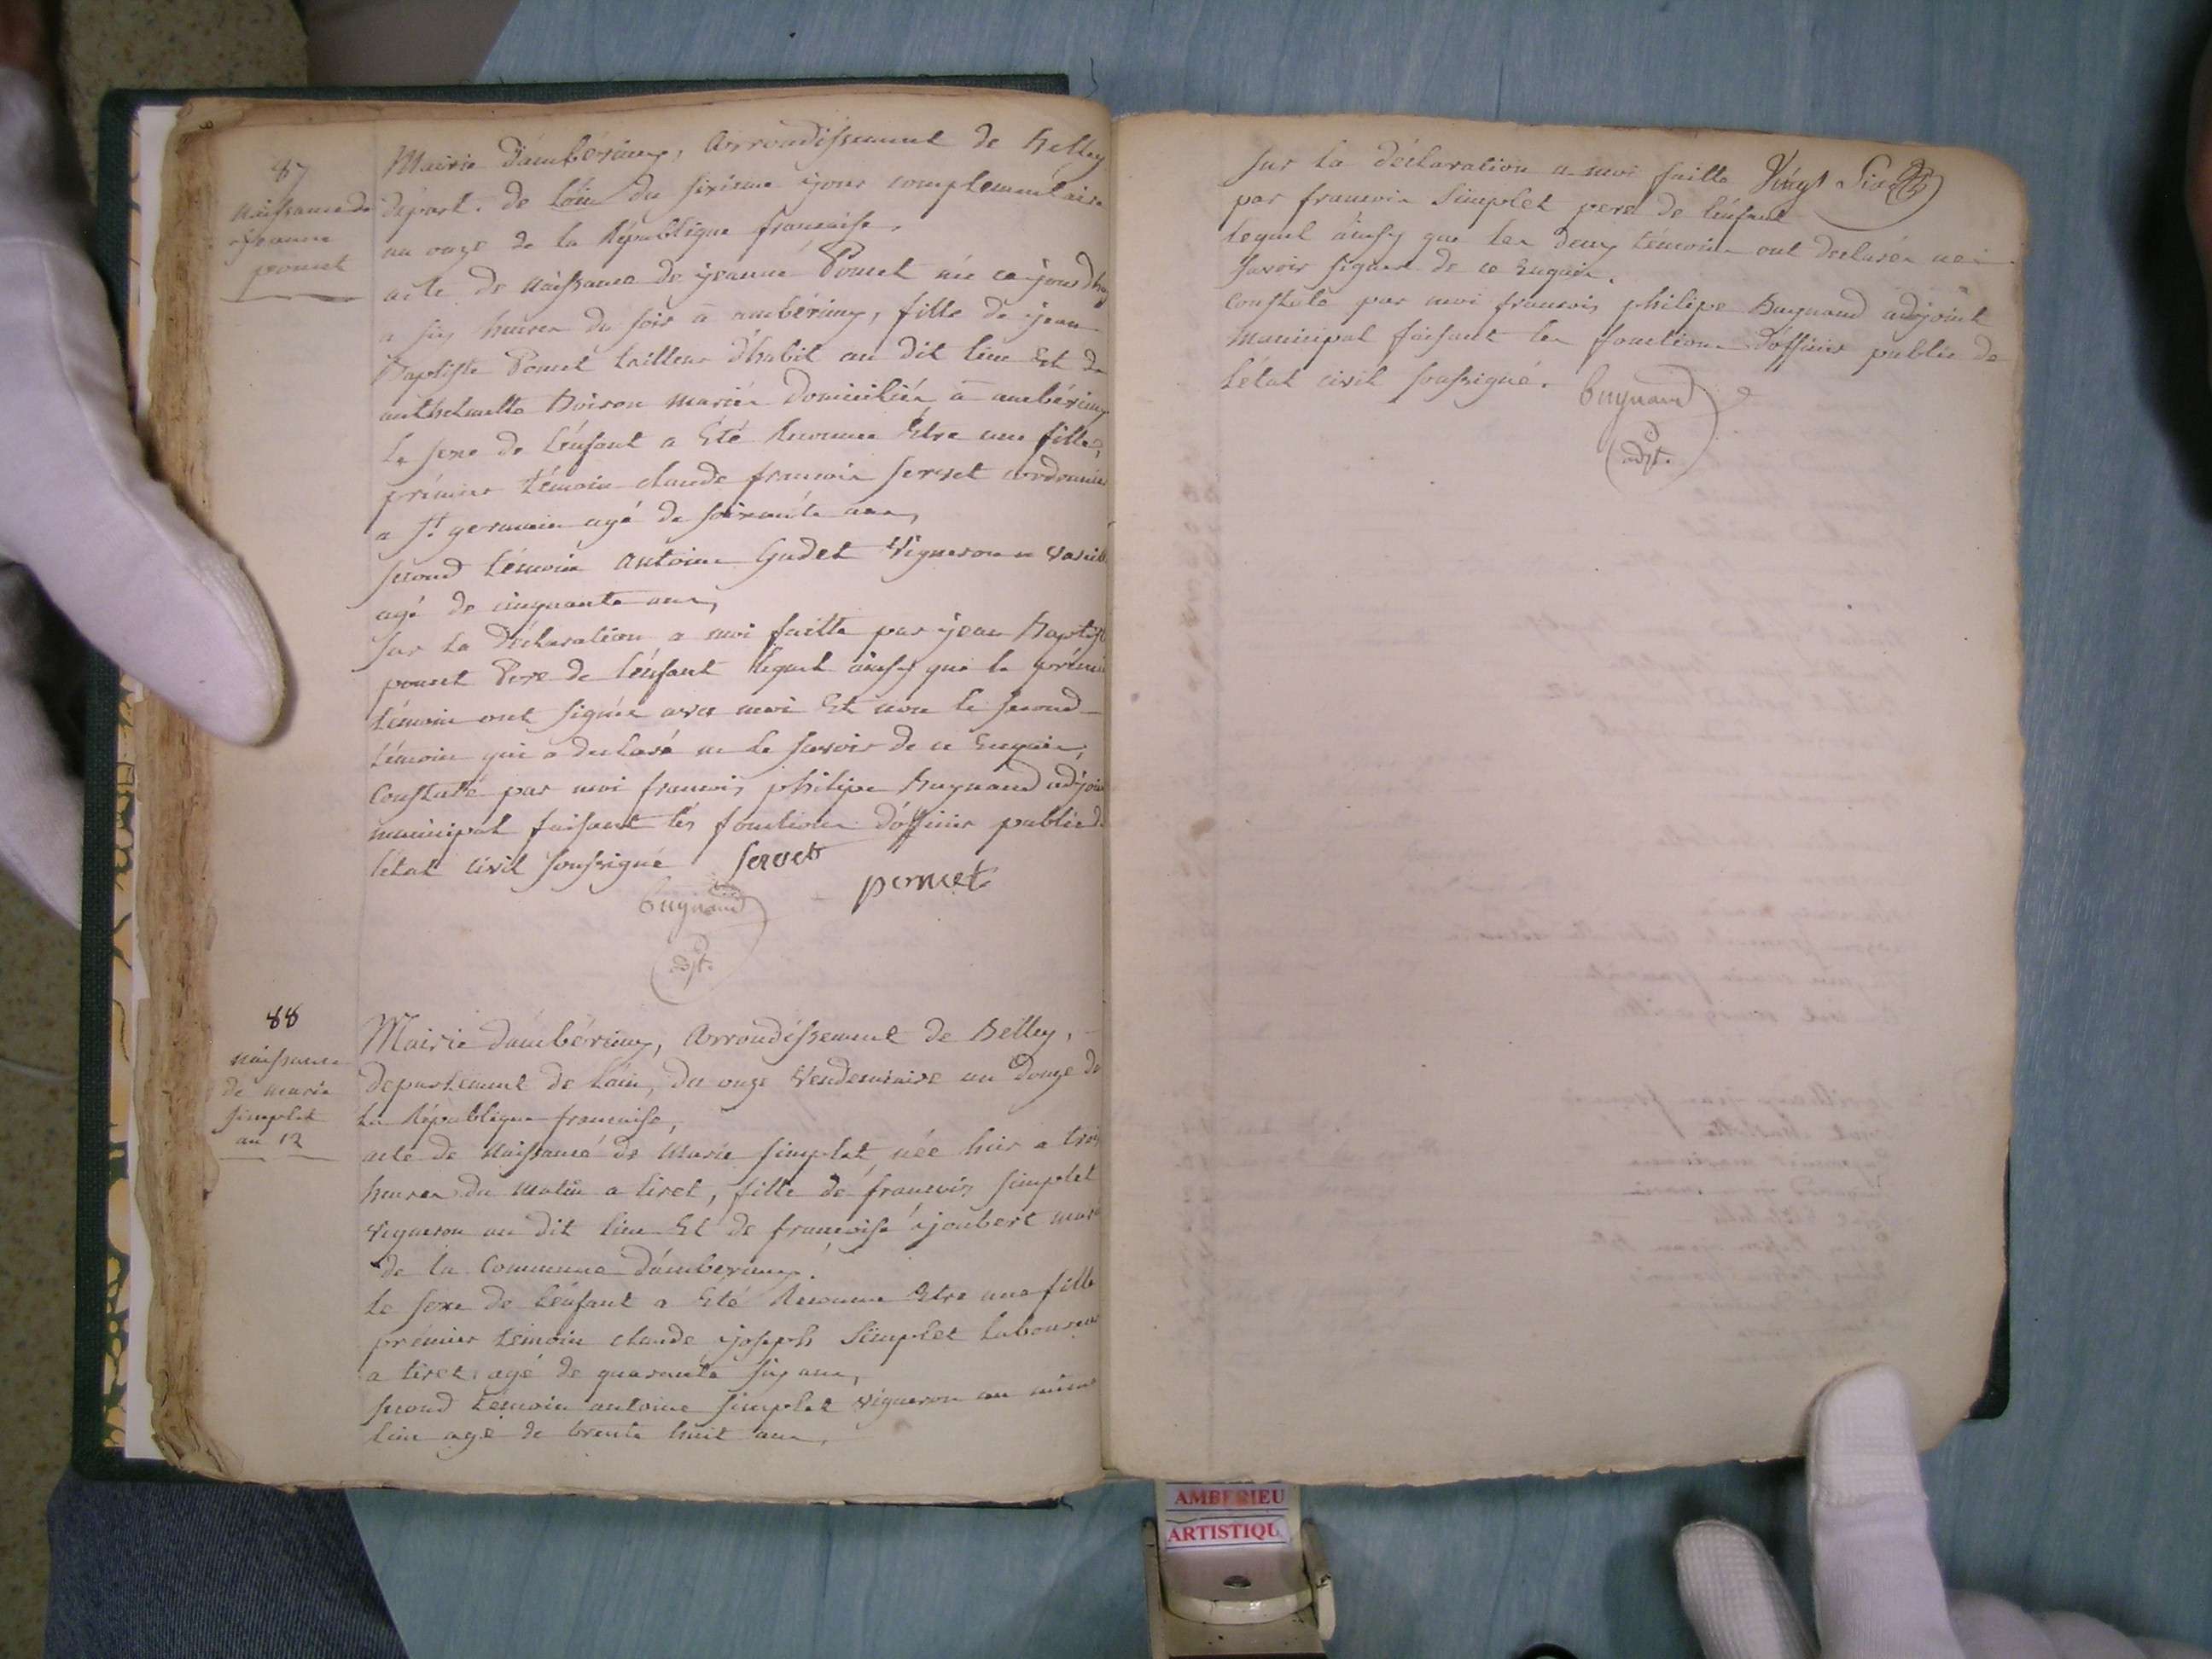 87
Naissance de
jeanne
poncet
Mairie d'ambérieux, Arrondissement de Belley
départ. de l'ain du sixieme jour complementaire
an onze de la République francaise,
acte de Naissance de jeanne Poncet née ce jourd'huy
a six heures du soir a ambérieux, fille de jean
Baptiste Poncet tailleur d'habit au dit lieu Et de
anthelmette Boison mariés domiciliés a ambérieux
Le sexe de l'enfant a Eté Reconnu Etre une fille,
prémier témoin claude francois servet cordonnier
a St germain agé de soixante ans,
second témoin Antoine Gudet Vigneron a Vareille
agé de cinquante ans,
sur La Déclaration a moi faitte par jean Baptiste
poncet Pere de l'enfant Lequel ainsy que le prémier
témoin ont signés avec moi Et non le second
témoin qui a declaré ne le savoir de ce Enquis,
Constaté par moi francois philipe Bugnand adjoint
municipal faisant les fonctions d'officier public de
l'état civil soussigné servet
poncet
Bugnand
adjt.
88
Naissance
de marie
simplet
an 12
Mairie d'ambérieux, Arrondissement de Belley,
departement de L'ain, du onze Vendemiaire an Douze de
La République francaise,
acte de Naissance de Marie simplet née hier a trois
heures du matin a tiret, fille de francois simplet
vigneron au dit lieu Et de francoise joubert mariés
de la Commune d'amberieux.
Le sexe de l'enfant a Eté Reconnu Etre une fille
prémier témoin claude joseph Simplet laboureur
a tiret agé de quarante six ans,
second témoin antoine simplet vigneron au même
lieu agé de trente huit ans,
Vingt Six
sur La déclaration a moi faitte
par francois Simplet pere de l'enfant
lequel ainsy que les deux témoins ont declarés ne
savoir signer de ce Enquis.
Constaté par moi francois philipe Bugnand adjoint
municipal faisant les fonctions d'officier public de
l'état civil soussigné.
Bugnand
adjt.
AMBERIEU
ARTISTIQU